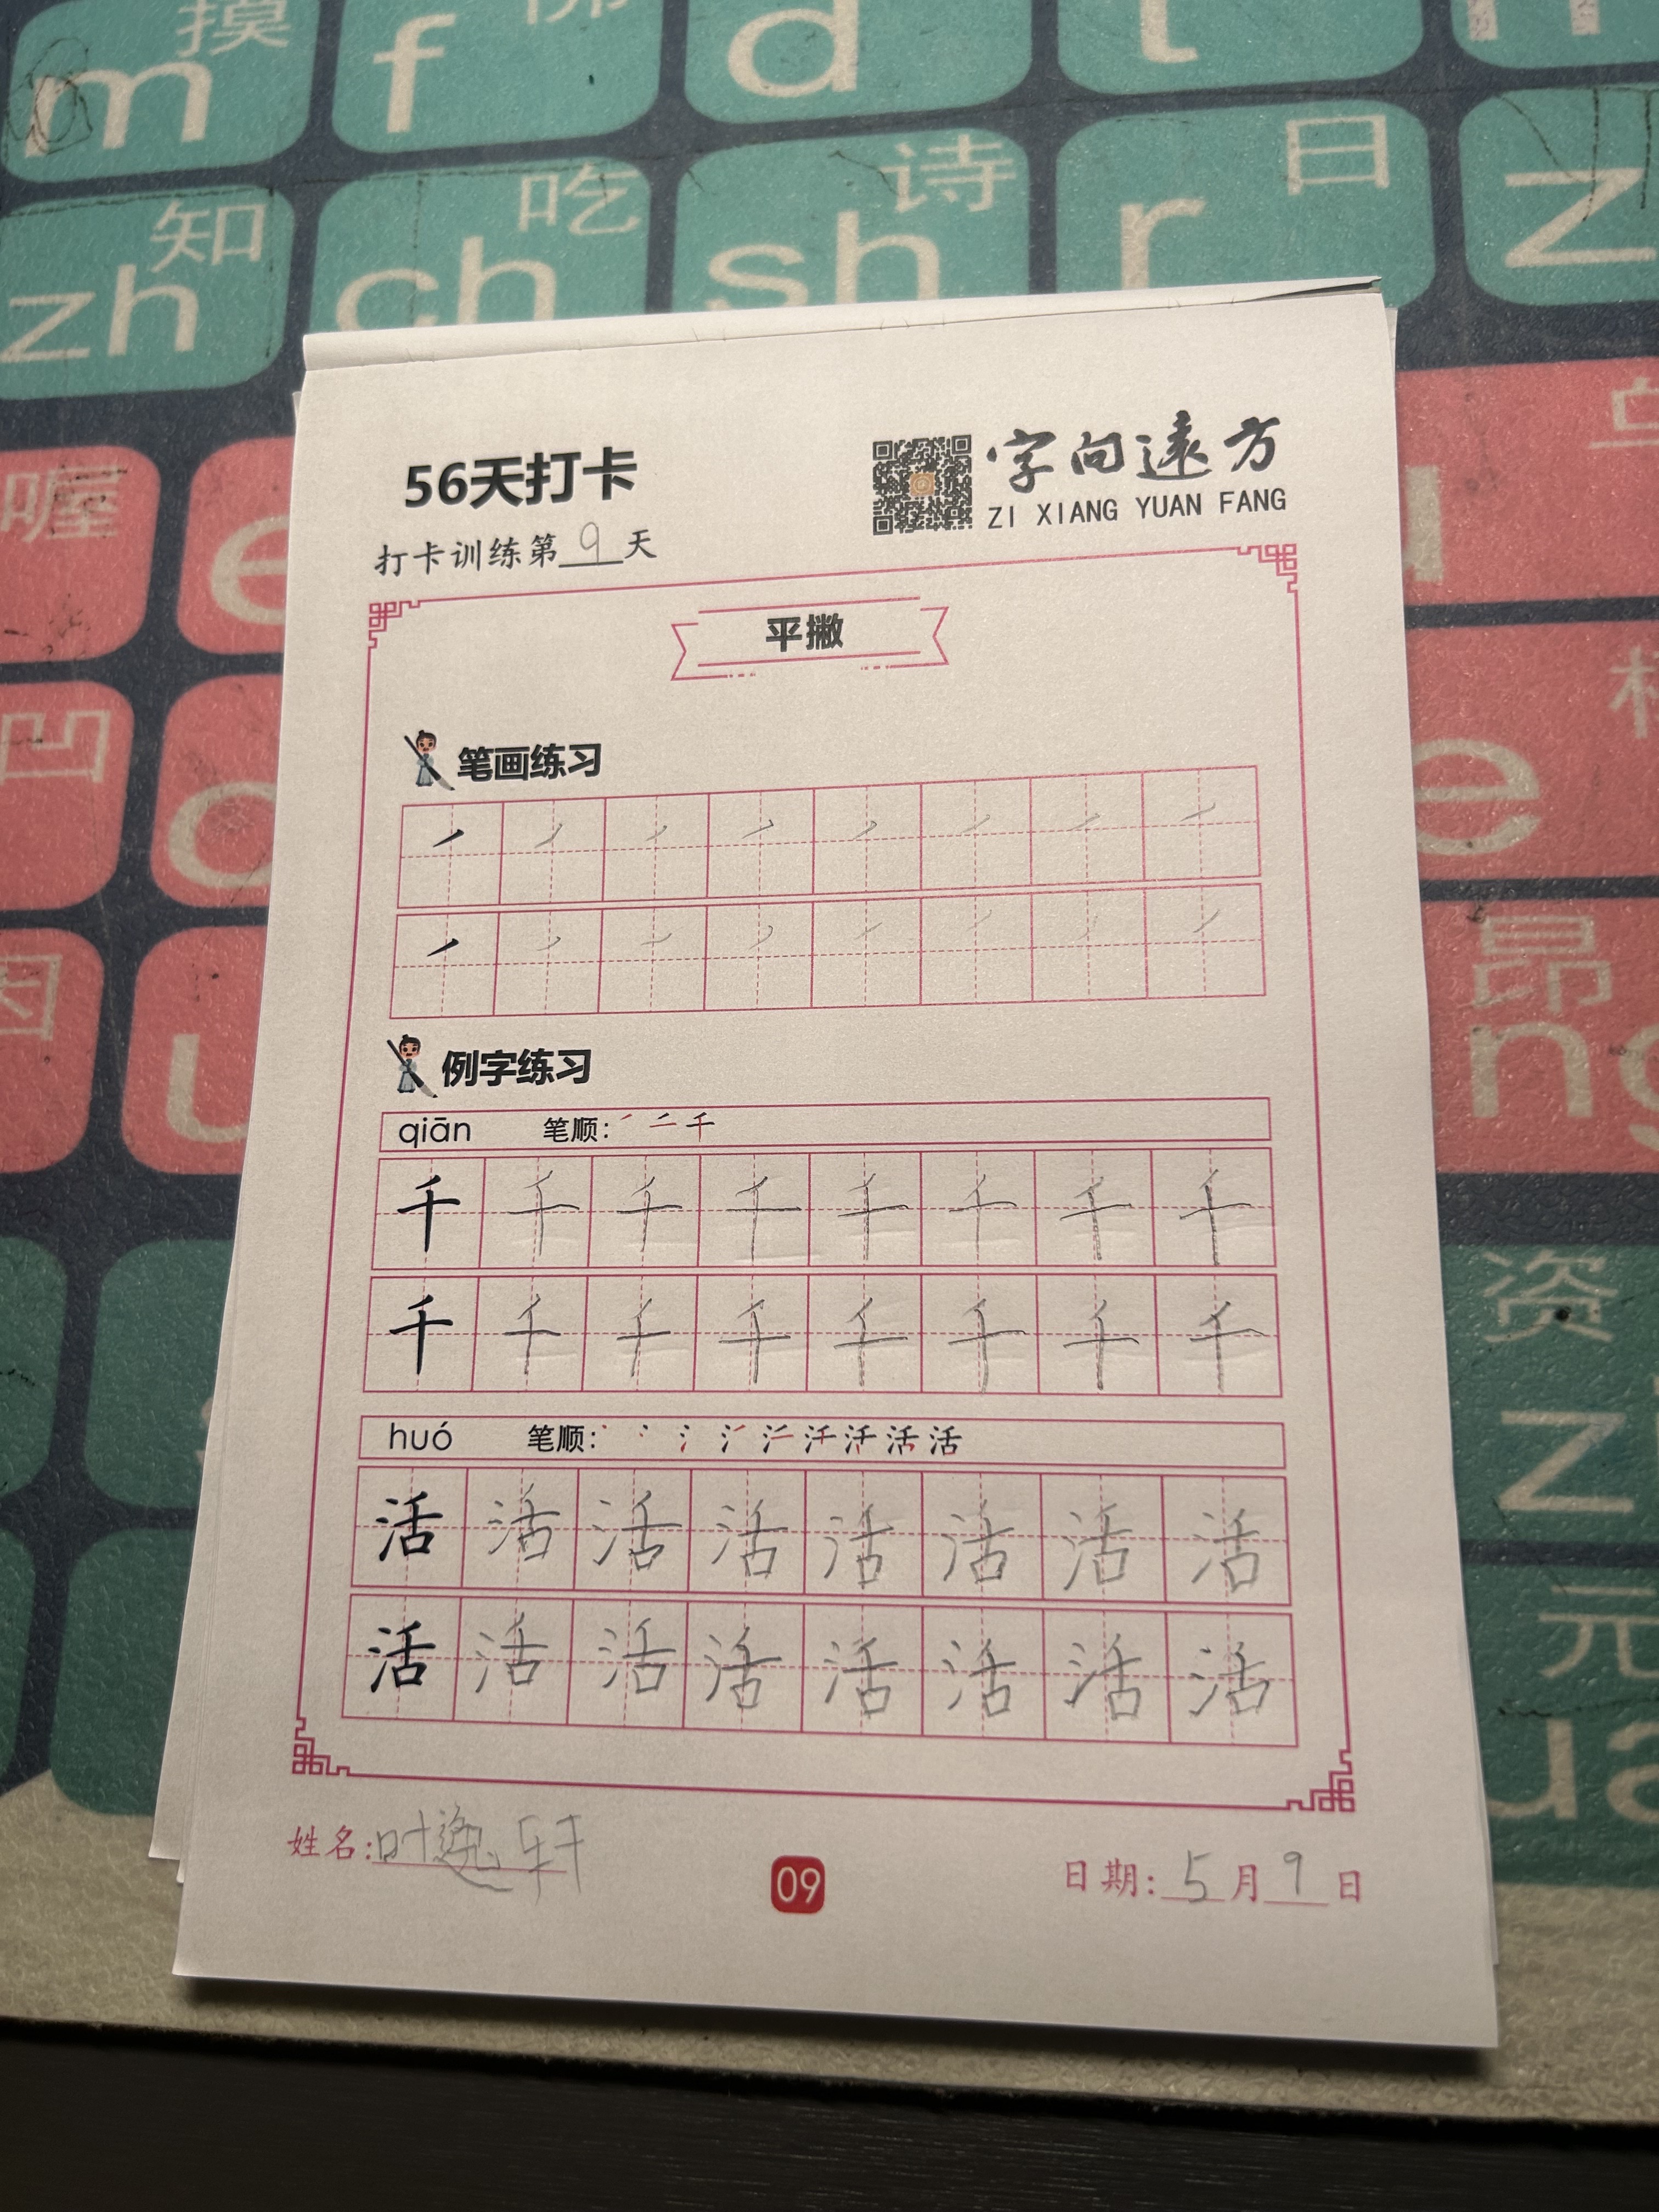 摸 佛
m f d t n
知 吃 诗 日
zh ch sh r z
喔
e
凹
o e
因 昂
u ng
资
z
元
ua
56天打卡
字向遠方
ZI XIANG YUAN FANG
打卡训练第9天
平撇
笔画练习
例字练习
qiān 笔顺: ㇒ 二 千
千 千 千 千 千 千 千 千
千 千 千 千 千 千 千 千
huó 笔顺: 活
活 活 活 活 活 活 活 活
活 活 活 活 活 活 活 活
姓名:叶逸轩
09
日期:5月9日